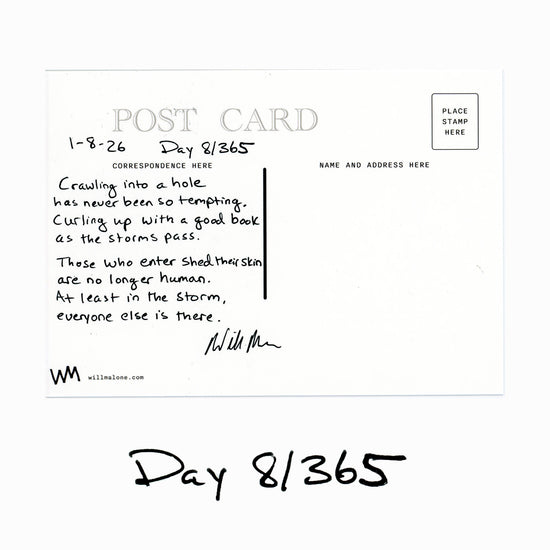 POST CARD
PLACE
STAMP
HERE
1-8-26 Day 8/365
CORRESPONDENCE HERE
NAME AND ADDRESS HERE
Crawling into a hole
has never been so tempting.
Curling up with a good book
as the storms pass.
Those who enter shed their skin
are no longer human.
At least in the storm,
everyone else is there.
WM willmalone.com
Day 8/365